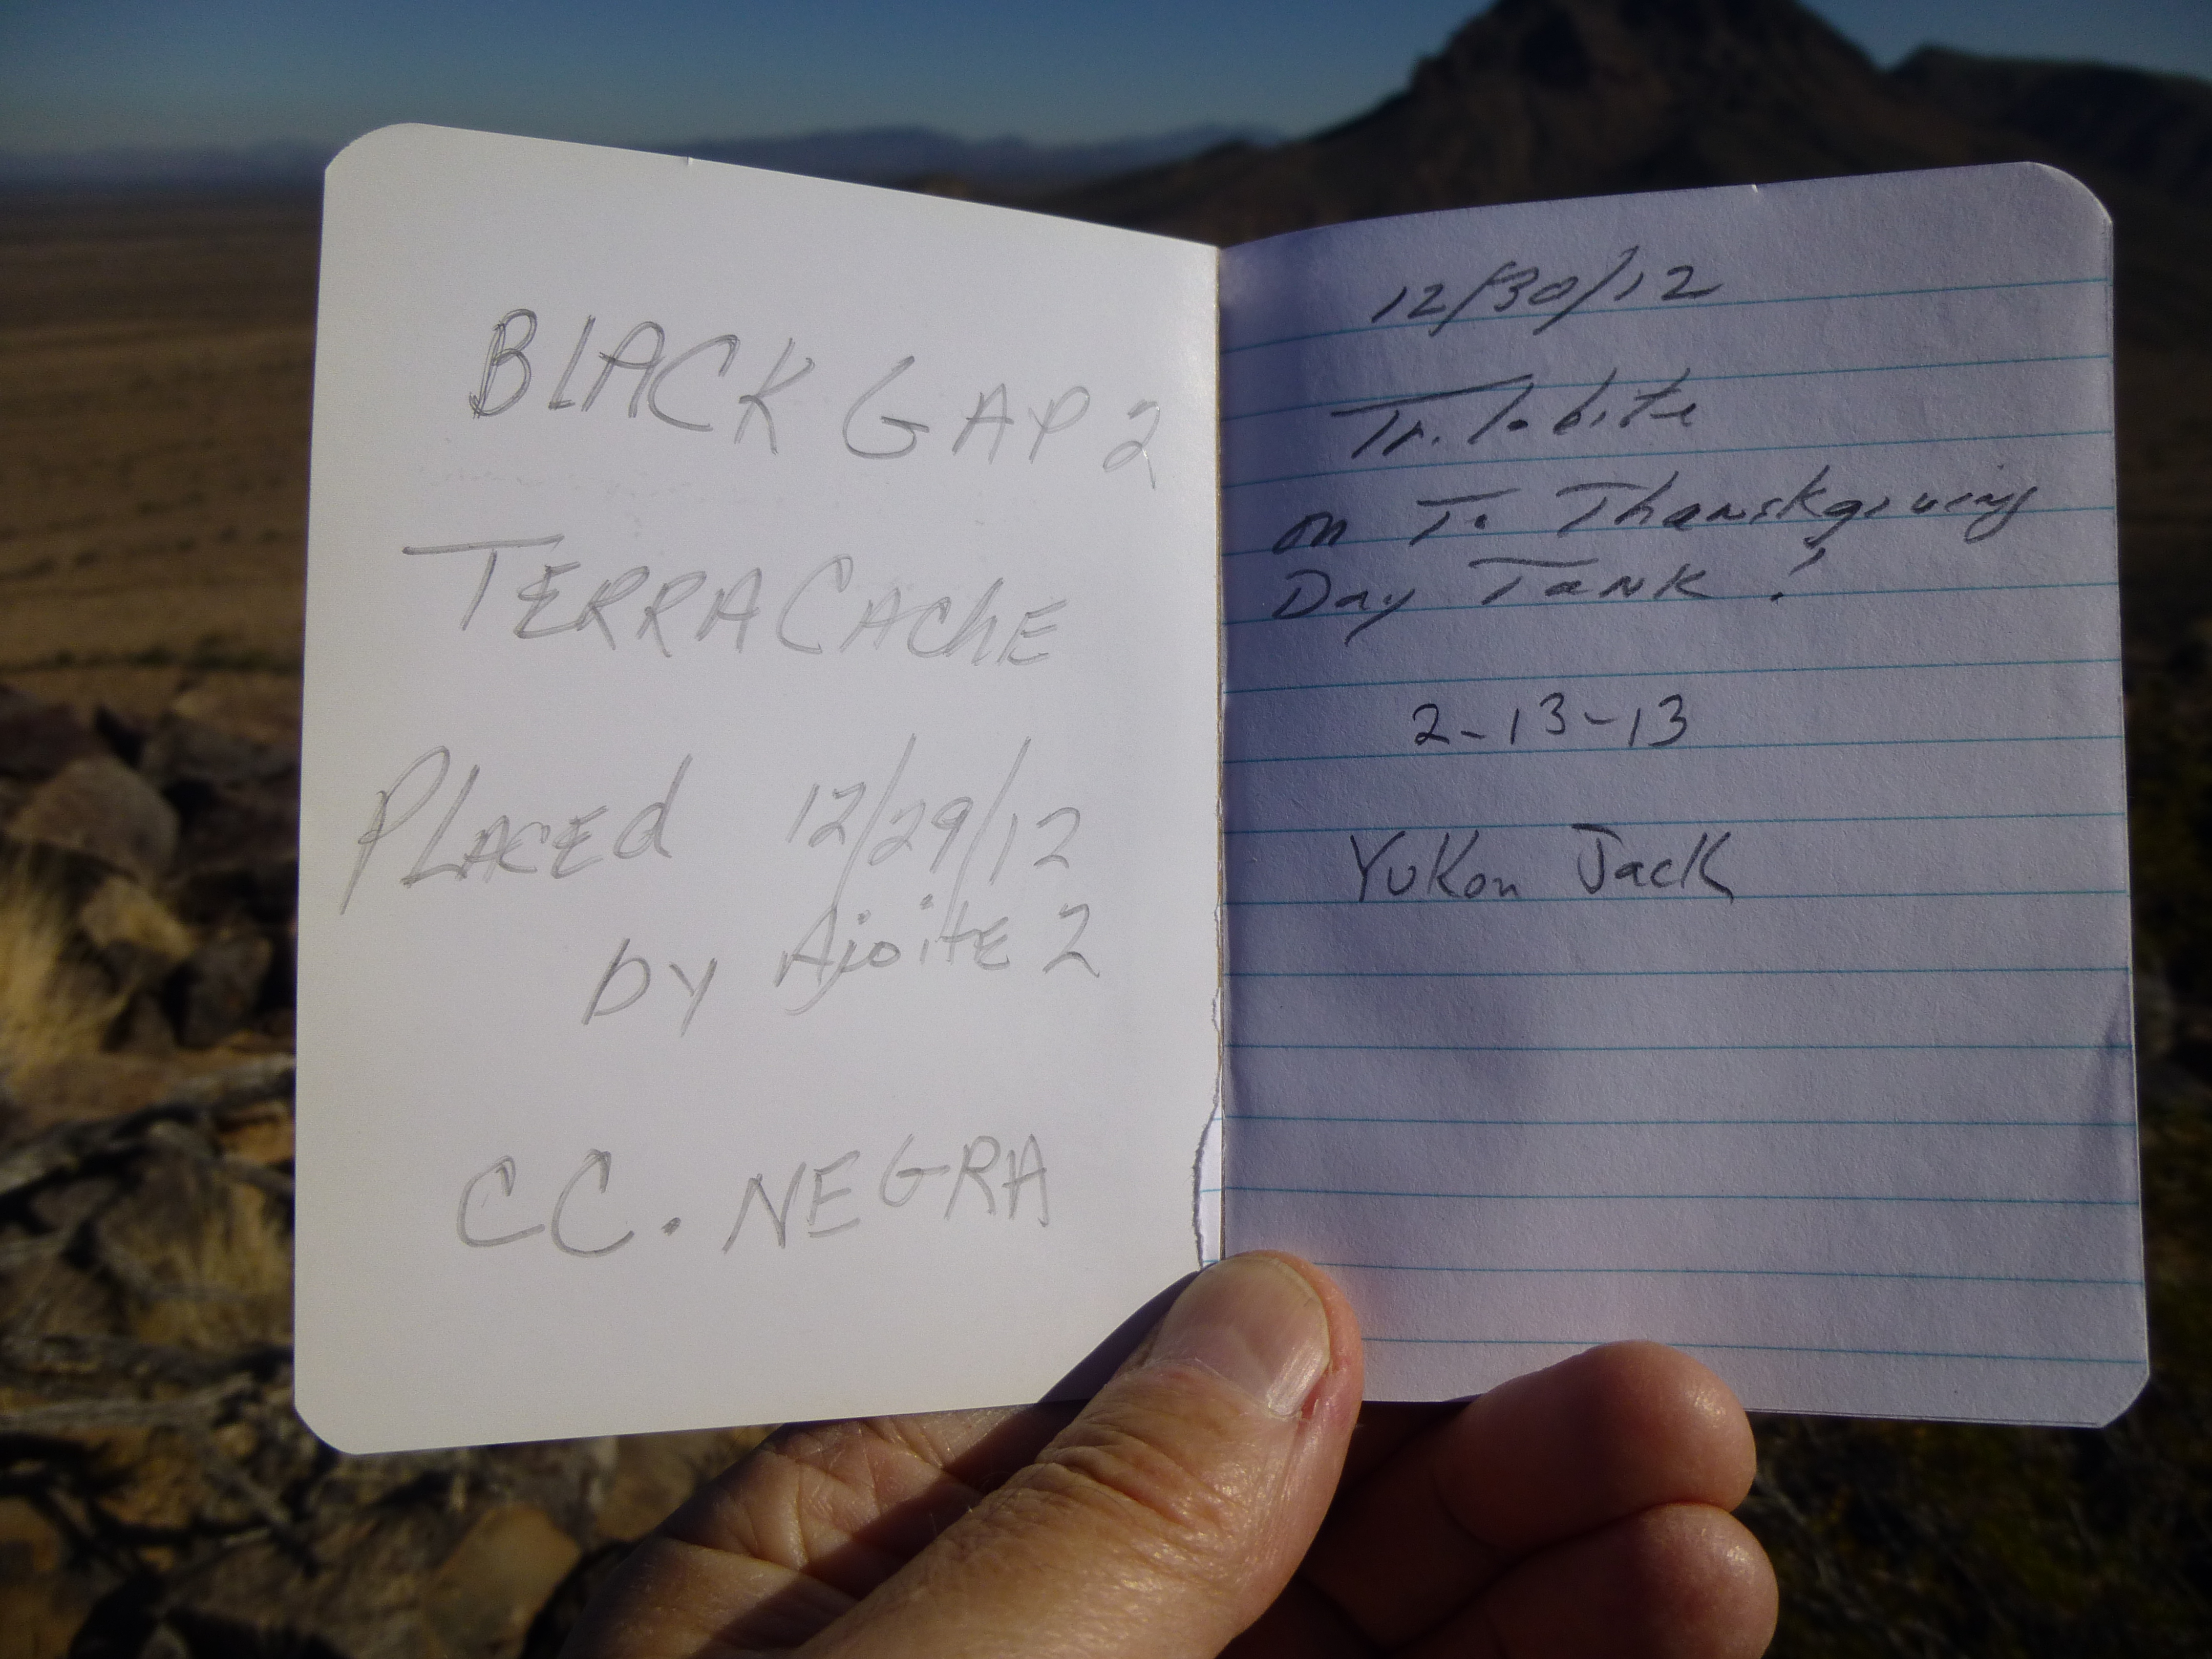 BLACK GAP 2
TERRACACHE
PLACED 12/29/12
by Ajoite 2
CC. NEGRA
12/30/12
Trilobite
on To Thanskgiving
Day Tank!
2-13-13
Yukon Jack